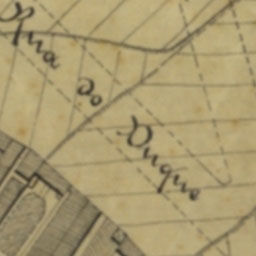 Rua do Duque